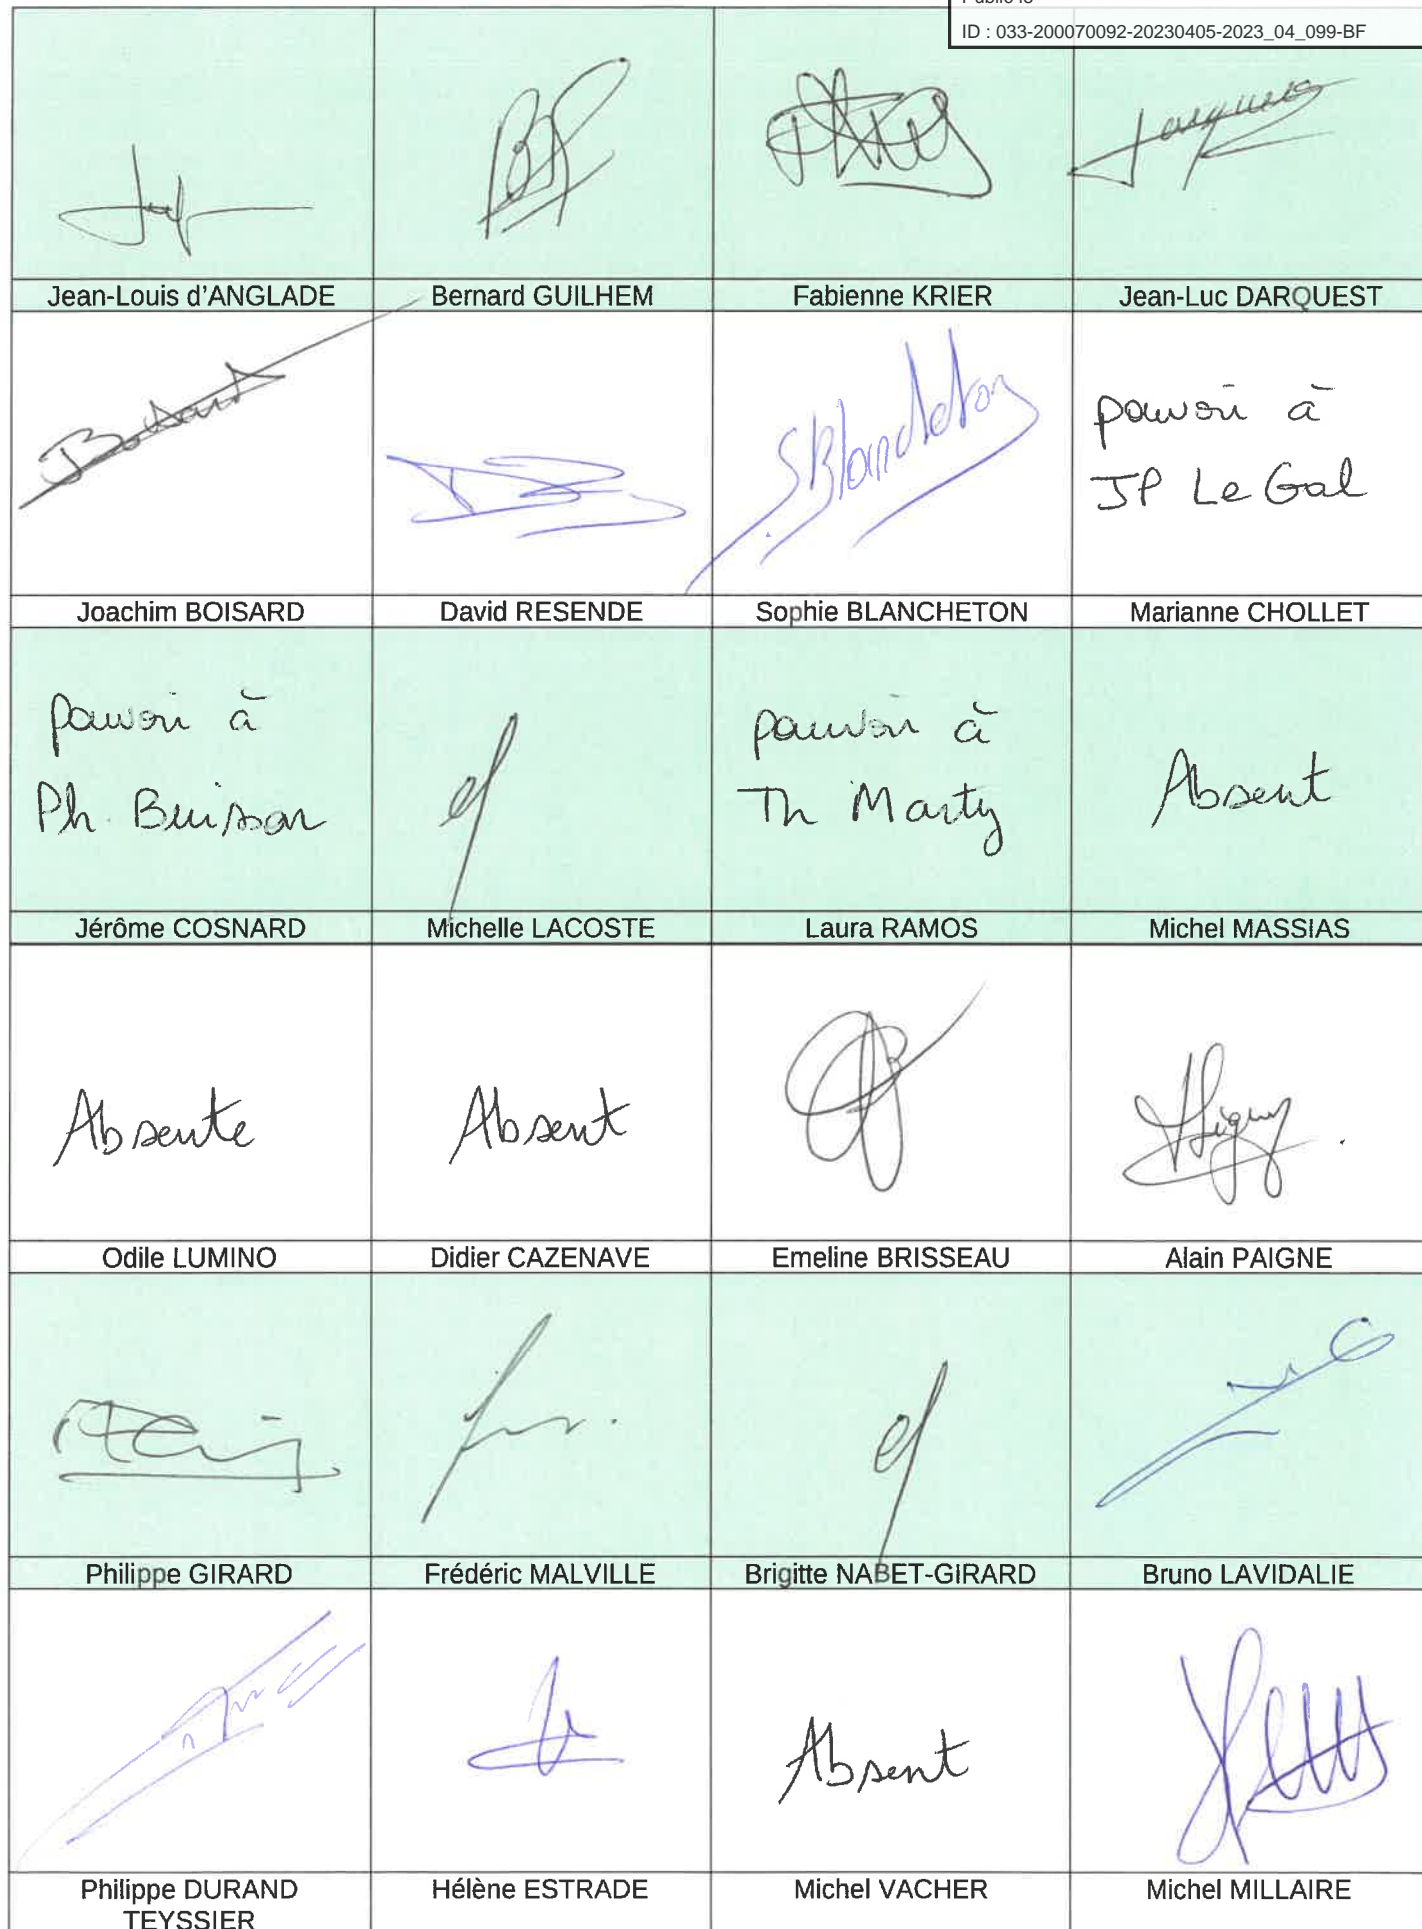 ID : 033-200070092-20230405-2023_04_099-BF
Jean-Louis d'ANGLADE
Bernard GUILHEM
Fabienne KRIER
Jean-Luc DARQUEST
Boisard
S Blancheton
pouvoir à
JP Le Gal
Joachim BOISARD
David RESENDE
Sophie BLANCHETON
Marianne CHOLLET
pouvoir à
Ph. Buisson
pouvoir à
Th Marty
Absent
Jérôme COSNARD
Michelle LACOSTE
Laura RAMOS
Michel MASSIAS
Absente
Absent
Odile LUMINO
Didier CAZENAVE
Emeline BRISSEAU
Alain PAIGNE
Philippe GIRARD
Frédéric MALVILLE
Brigitte NABET-GIRARD
Bruno LAVIDALIE
Absent
Philippe DURAND
TEYSSIER
Hélène ESTRADE
Michel VACHER
Michel MILLAIRE